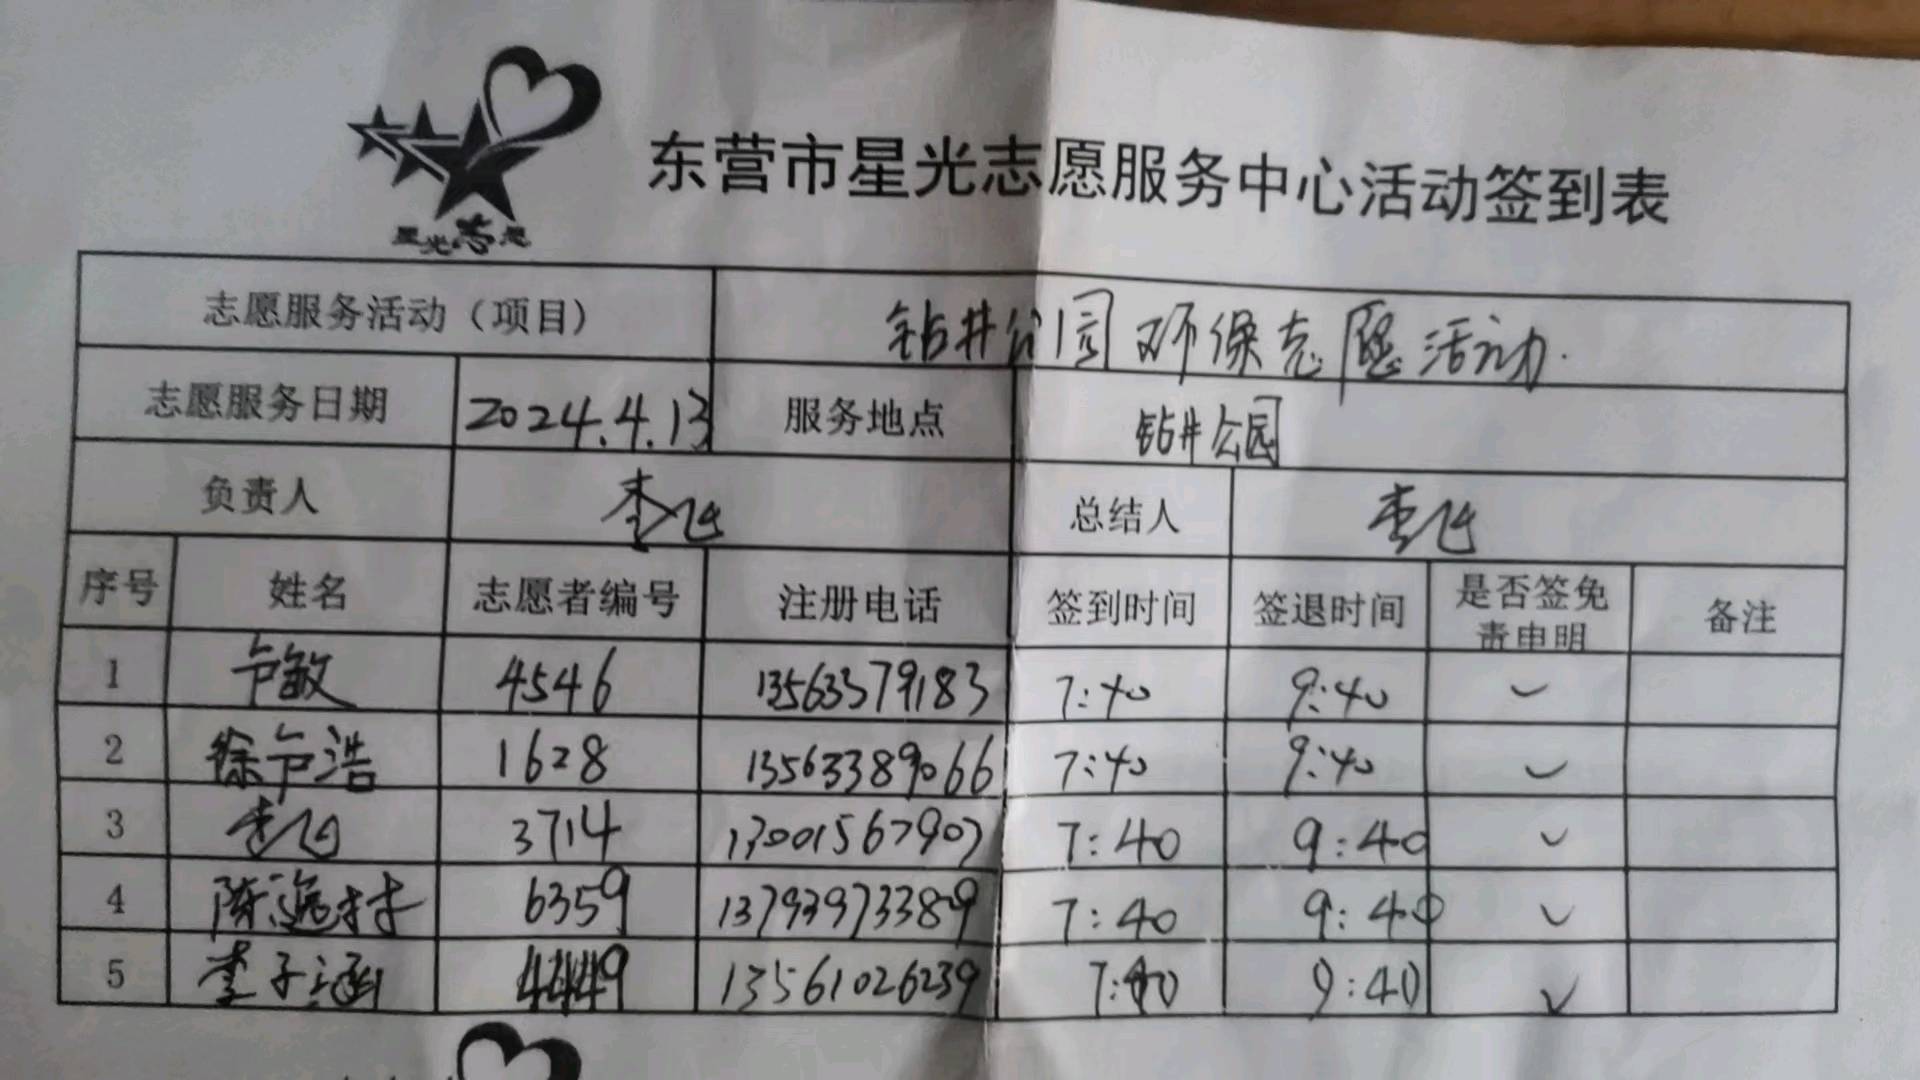 星光志愿
东营市星光志愿服务中心活动签到表
志愿服务活动（项目） 钻井公园环保志愿活动.
志愿服务日期 2024.4.13 服务地点 钻井公园
负责人 李飞 总结人 李飞
序号 姓名 志愿者编号 注册电话 签到时间 签退时间 是否签免责申明 备注
1 卢敏 4546 13563379183 7:40 9:40 ✓
2 徐卢浩 1628 13563389066 7:40 9:40 ✓
3 李飞 3714 13001567907 7:40 9:40 ✓
4 6359 13793973389 7:40 9:40 ✓
5 李子涵 4449 13561026239 7:40 9:40 ✓